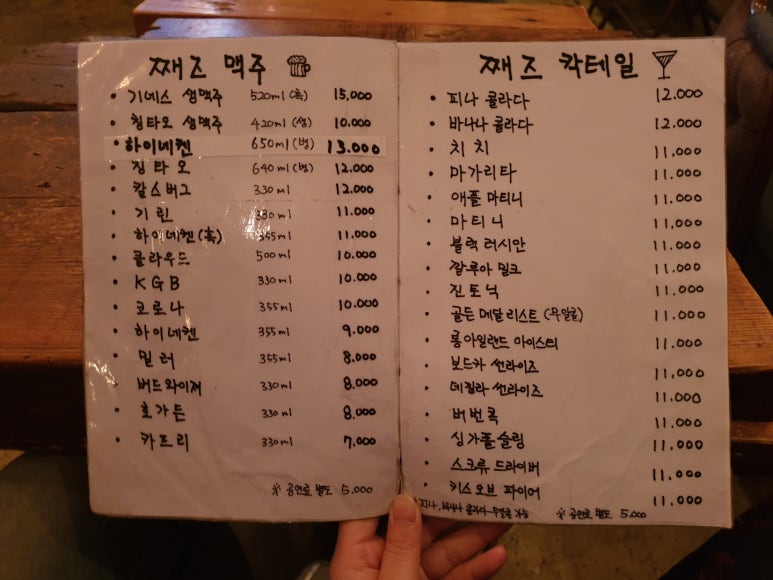 째즈 맥주
• 기네스 생맥주 520ml (흑) 15.000
• 칭타오 생맥주 420ml (생) 10.000
• 하이네켄 650ml (병) 13.000
• 칭타오 640ml (병) 12.000
• 칼스버그 330ml 12.000
• 기린 330ml 11.000
• 하이네켄 (흑) 355ml 11.000
• 클라우드 500ml 10.000
• KGB 330ml 10.000
• 코로나 355ml 10.000
• 하이네켄 355ml 9.000
• 밀러 355ml 8.000
• 버드와이져 330ml 8.000
• 호가든 330ml 8.000
• 카프리 330ml 7.000
※ 공연료 별도 5,000
째즈 칵테일
• 피나 콜라다 12.000
• 바나나 콜라다 12.000
• 치치 11.000
• 마가리타 11.000
• 애플 마티니 11.000
• 마티니 11.000
• 블랙 러시안 11.000
• 깔루아 밀크 11.000
• 진토닉 11.000
• 골든 메달리스트 (무알콜) 11.000
• 롱아일랜드 아이스티 11.000
• 보드카 썬라이즈 11.000
• 데킬라 썬라이즈 11.000
• 버번콕 11.000
• 싱가폴슬링 11.000
• 스크류 드라이버 11.000
• 키스오브 파이어 11.000
피나, 바나나 콜라다 무알콜 가능 ※ 공연료 별도 5,000